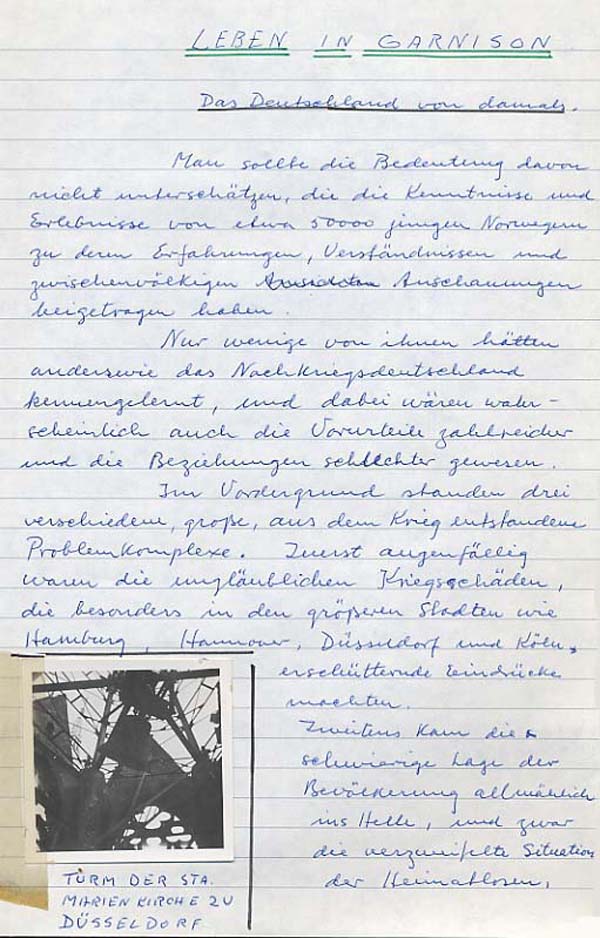 LEBEN IN GARNISON
Das Deutschland von damals.
Man sollte die Bedeutung davon
nicht unterschätzen, die die Kenntnisse und
Erlebnisse von etwa 50000 jungen Norwegern
zu deren Erfahrungen, Verständnissen und
zwischenvölkigen Anschauungen
beigetragen haben.
Nur wenige von ihnen hätten
anderswie das Nachkriegsdeutschland
kennengelernt, und dabei wären wahr-
scheinlich auch die Vorurteile zahlreicher
und die Beziehungen schlechter gewesen.
Im Vordergrund standen drei
verschiedene, große, aus dem Krieg entstandene
Problemkomplexe. Zuerst augenfällig
waren die ungläublichen Kriegsschäden,
die besonders in den größeren Städten wie
Hamburg, Hannover, Düsseldorf und Köln
erschütternde Eindrücke
machten.
Zweitens kam die
schwierige Lage der
Bevölkerung allmählich
ins Helle, und zwar
die verzweifelte Situation
der Heimatlosen,
TURM DER STA.
MARIENKIRCHE ZU
DÜSSELDORF